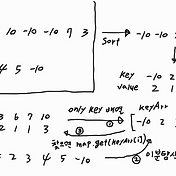 10 -10 -10 7 3
sort
-10 -10 2
4 5 -10
key -10 2
value 2 1
3 6 7 10
2 1 1 3
only key 배열
①
keyArr
[-10 2
③
찾으면 map.get(keyArr[i])
2 3 4 5 -10
②
이분탐색